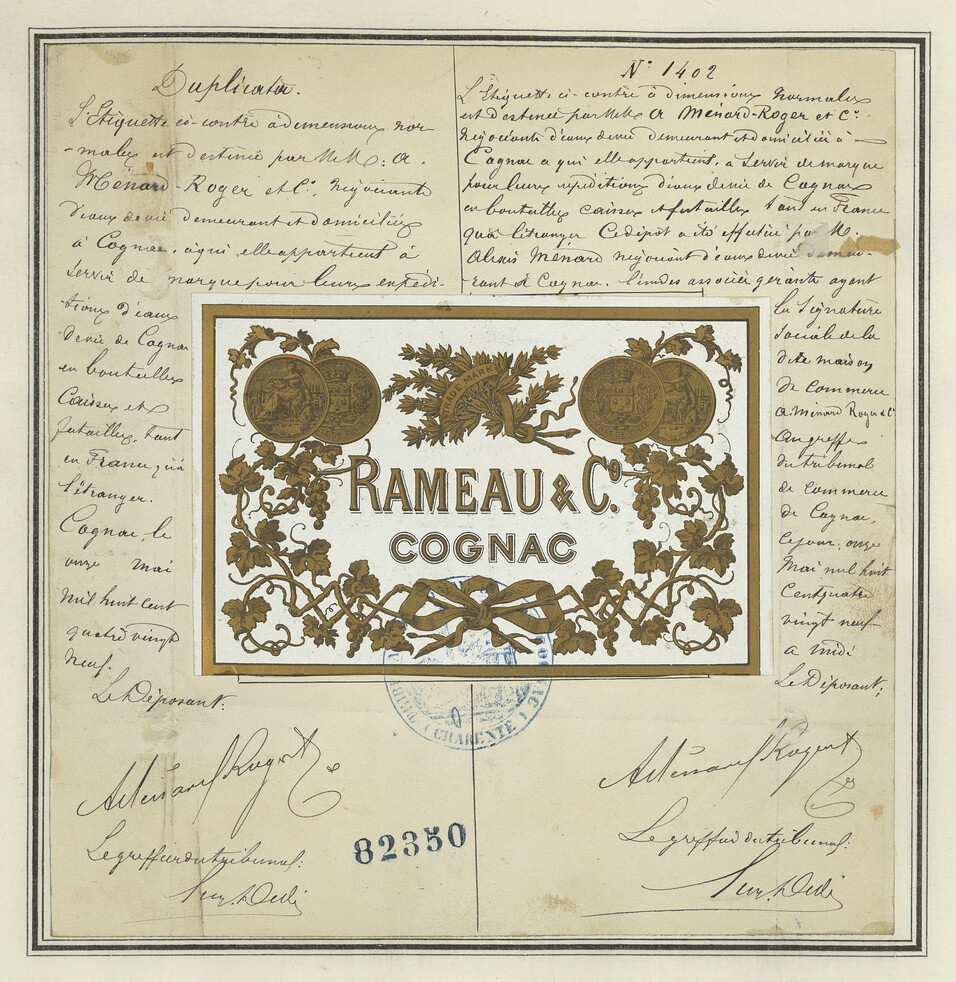 Duplicata.
L'Etiquette ci-contre à dimensions nor-
-males est destinée par M.M: A.
Ménard-Roger et Cie, Négociants
d'eaux de vie demeurant et domiciliés
à Cognac, à qui elle appartient à
servir de marque pour leurs expédi-
-tions d'eaux
de vie de Cognac
en bouteilles
Caisses et
futailles, tant
en France qu'à
l'étranger.
Cognac, le
onze mai
mil huit cent
quatre vingt
neuf.
Le Déposant:
A Ménard Roger & Cie
Le greffier du tribunal:
N° 1402
L'Etiquette ci-contre à dimensions normales
est destinée par M.M. A Ménard-Roger et Cie
Négociants d'eaux de vie demeurant et domiciliés à
Cognac a qui elle appartient, a servir de marque
pour leurs expéditions d'eaux de vie de Cognac
en bouteilles caisses et futailles tant en France
qu'à l'étranger Ce dépôt a été effectué par M.
Alexis Ménard négociant d'eaux de vie demeu-
-rant à Cognac. l'un des associés gérants ayant
la Signature
sociale de la
dite maison
de commerce
A. Ménard Roger & Cie
au greffe
du tribunal
de commerce
de Cognac,
Ce jour, onze
Mai mil huit
Cent quatre
vingt neuf
a midi
Le Déposant;
A Ménard Roger & Cie
Le greffier du tribunal:
TRADE MARK
RAMEAU & Co.
COGNAC
(CHARENTE)
82350